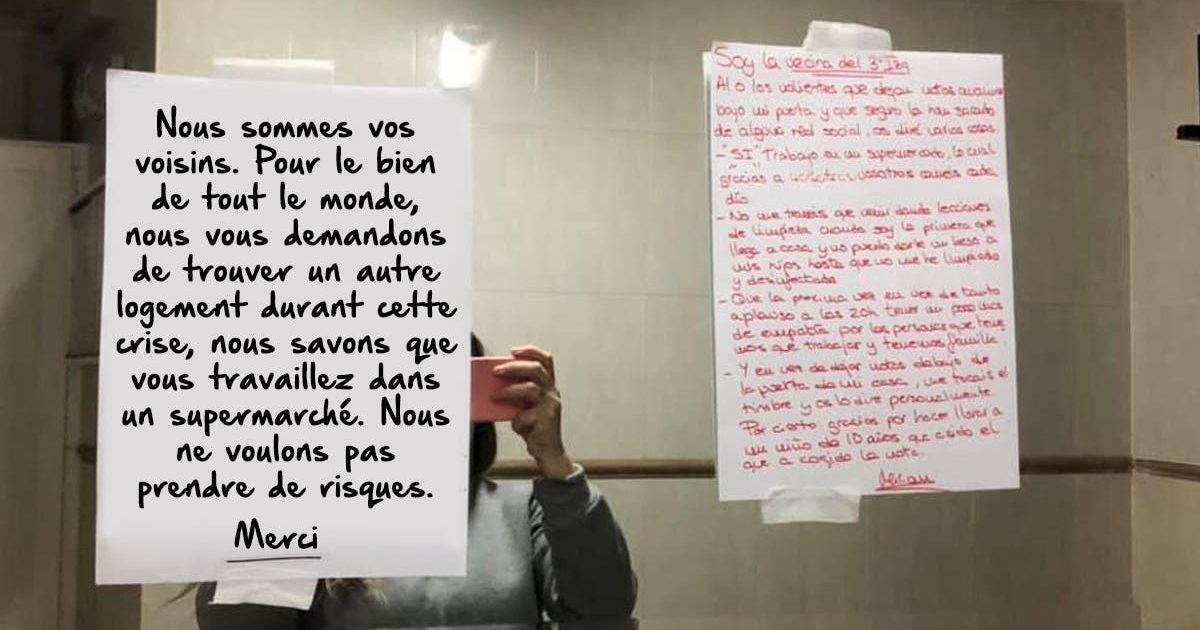 Nous sommes vos
voisins. Pour le bien
de tout le monde,
nous vous demandons
de trouver un autre
logement durant cette
crise, nous savons que
vous travaillez dans
un supermarché. Nous
ne voulons pas
prendre de risques.
Merci
Soy la vecina del 3º Izq
Al o los valientes que dejan notas
bajo mi puerta y que seguro la han sacado
de alguna red social, os diré varias cosas
- "SI" Trabajo en un supermercado, lo cual
gracias a vosotros coméis cada
día
- No me tenéis que venir dando lecciones
de limpieza cuando soy la primera que
llega a casa y no puedo darle un beso a
mis niños hasta que no me he limpiado
y desinfectado
- Que la próxima vez en vez de tanto
aplauso a las 20h tener un poco más
de empatía por las personas que tene
mos que trabajar y tenemos familia
- Y en vez de dejar notas debajo de
la puerta de mi casa, me tocais el
timbre y os lo dire personalmente.
Por cierto gracias por hacer llorar a
un niño de 10 años que a sido el
que a cogido la nota.
Miriam